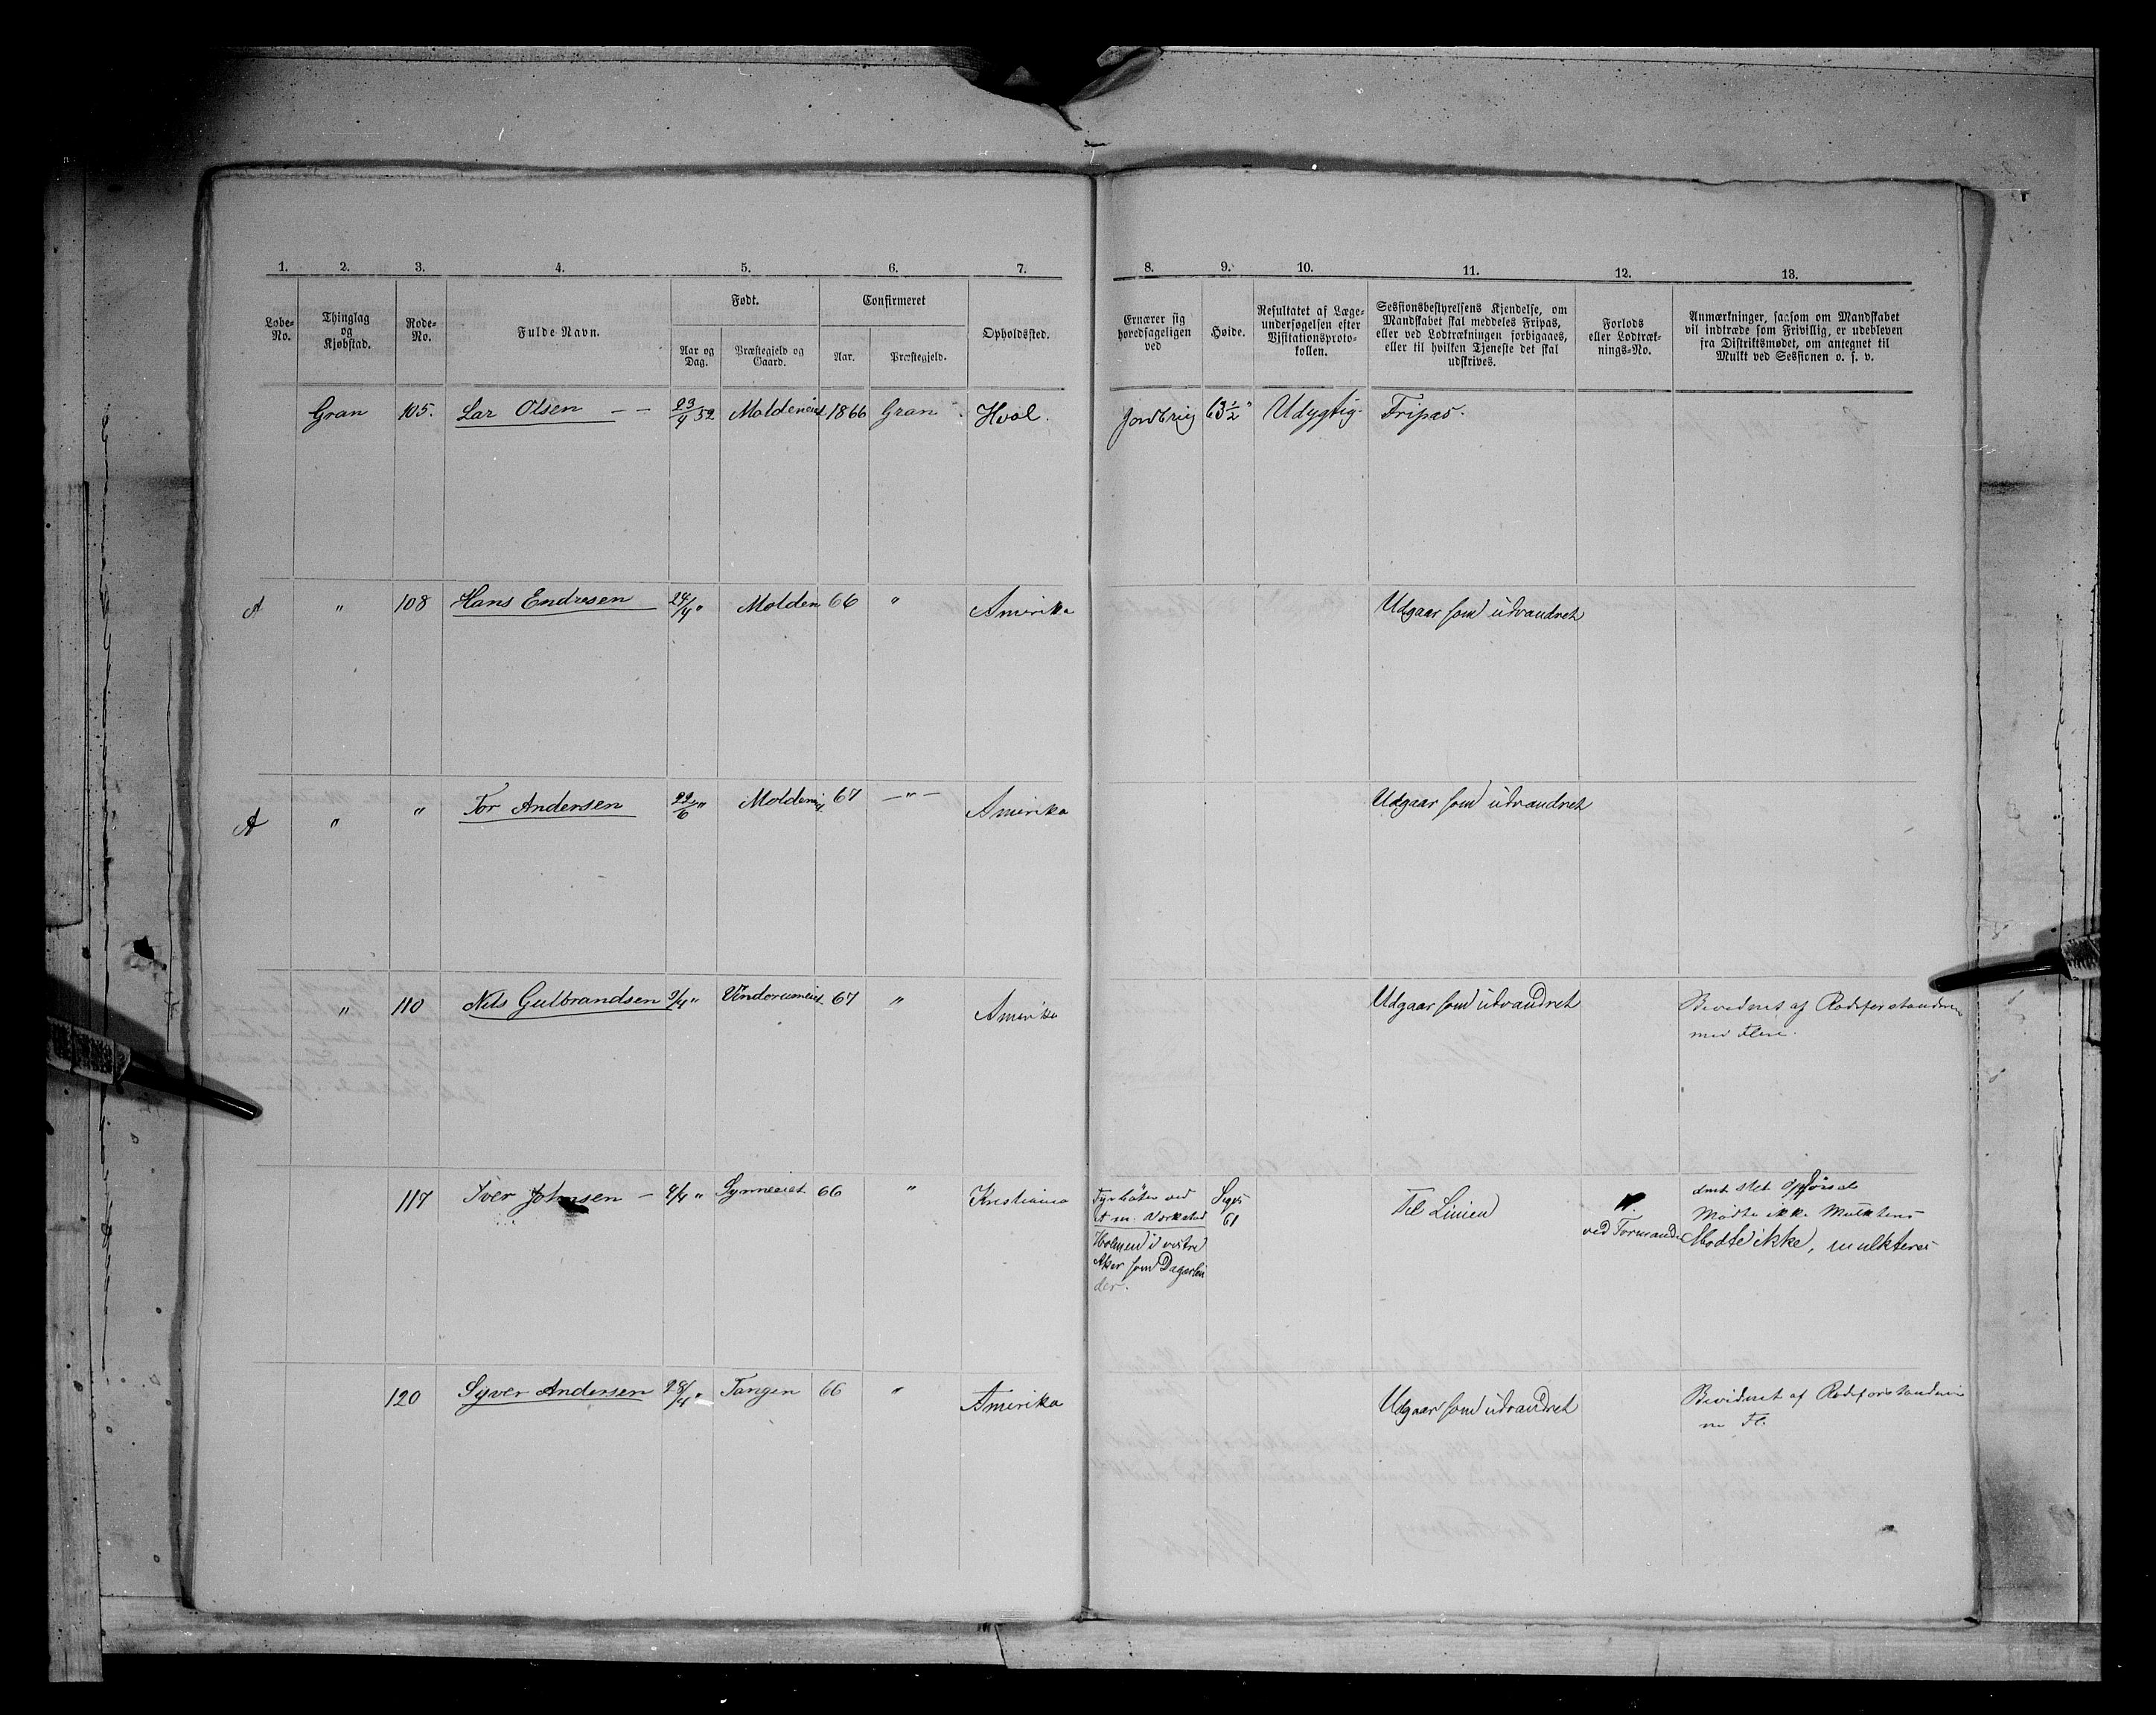 1. 2. 3. 4. 5. 6. 7.
Løbe-No. Thinglag og Kjøbstad. Rode-No. Fulde Navn. Født. Confirmeret Opholdssted.
Aar og Dag. Præstegjeld og Gaard. Aar. Præstegjeld.
Gran 105. Lar Olsen — — 23/4 52 Moldeneiet 1866 Gran Hval.
A " 108 Hans Endresen 24/4 " Molden 66 " Amerika
A " " Tor Andersen 22/6 " Moldeneiet 67 —"— Amerika
" 110 Nils Gulbrandsen 9/4 " Vindorumeiet 67 " Amerika
117 Iver Johnsen — 4/4 " Synneeiet 66 " Kristiania
120 Syver Andersen 28/4 " Tangen 66 " Amerika
8. 9. 10. 11. 12. 13.
Ernærer sig hovedsageligen ved
Høide.
Resultatet af Læge-
undersøgelsen efter
Visitationsproto-
kollen.
Sessionsbestyrelsens Kjendelse, om
Mandskabet skal meddeles Fripas,
eller ved Lodtrækningen forbigaaes,
eller til hvilken Tjeneste det skal
udskrives.
Forlods
eller Lodtræk-
nings-No.
Anmærkninger, saasom om Mandskabet
vil indtræde som Frivillig, er udebleven
fra Distriktsmødet, om antegnet til
Mulkt ved Sessionen o. s. v.
Jordbrug 63 1/2" Udygtig. Fripas.
Udgaar som udvandret
Udgaar som udvandret
Udgaar som udvandret Bevidnet af Rodeforstanderen
med Flere.
Fyrbøter ved
Holmen i vestre
Aker som Dagarbei
der.
Siges
61
Til Linien
ved Formanden
slet Opførsel
Mødte ikke Mulkteres
Mødte ikke, mulkteres
Udgaar som udvandret Bevidnet af Rodeforstanderen
m Fl.